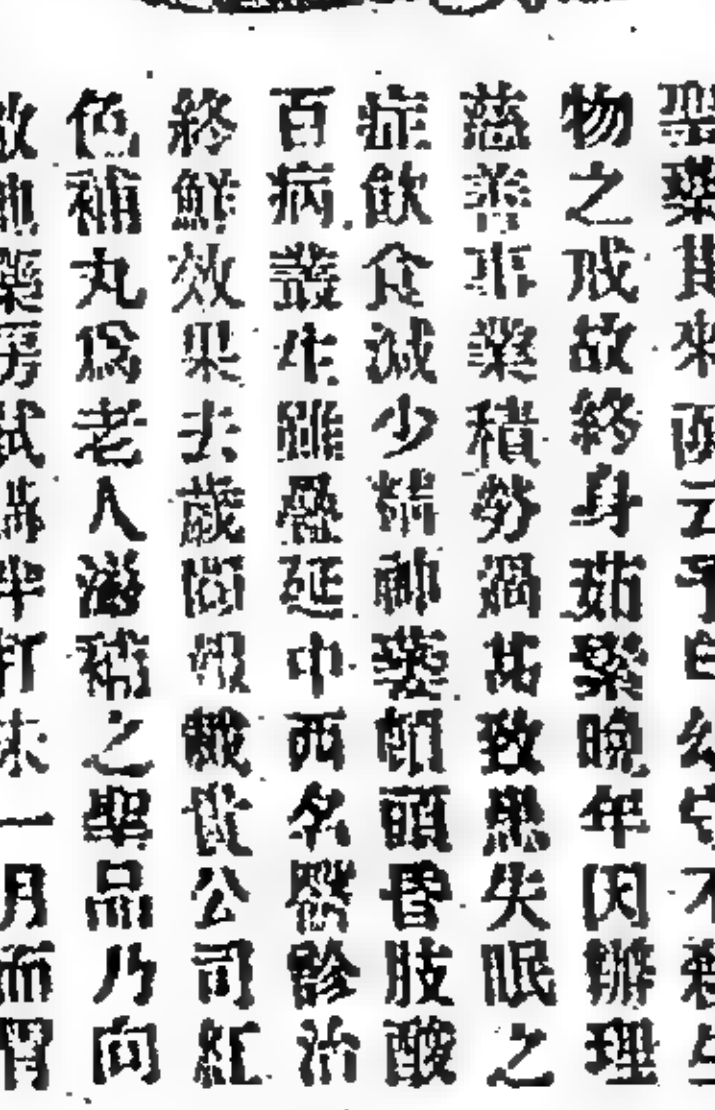 樂期來函云予自幼守不殺生
物之戒故終身茹素晚年因辦理
慈善事業積勞過甚致患失眠之
症飲食減少精神萎頓頭昏肢酸
百病叢生雖屢延中西名醫診治
終鮮效果去歲閱報載貴公司紅
色補丸為老人滋補之聖品乃向
藥房試購半打未一月而胃